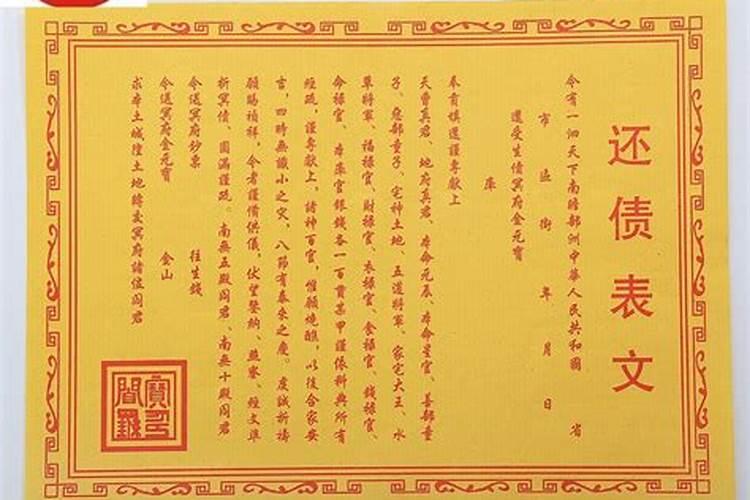 还债表文
今有一泗天下南瞻部洲中華人民共和國 省
市 區 街 年 月 日
還受生債冥府金元寶
庫
奉育填還謹專献上
天曹真君、地府真君、本命元辰、本命星官、善部童
子、惡部童子、宅神土地、五道將軍、家宅大王、水
草將軍、福禄官、財禄官、衣禄官、食禄官、錢禄官、
命禄官、本庫官銀錢各一百貫某甲謹依科典所有
經疏，謹專献上，諸神百官，惟願燒醮，以後合家安
吉，四時無讖小之灾，八節有泰來之慶。虔誠祈禱
願賜禎祥，令者謹備供儀，伏望鑒納、燕寮、經文準
折冥債、圆滿謹疏。南無五殿阎君、南無十殿阎君
今送冥府鈔票 往生錢
今送冥府金元寶 金山
求本土城隍土地轉交冥府諸位阎君